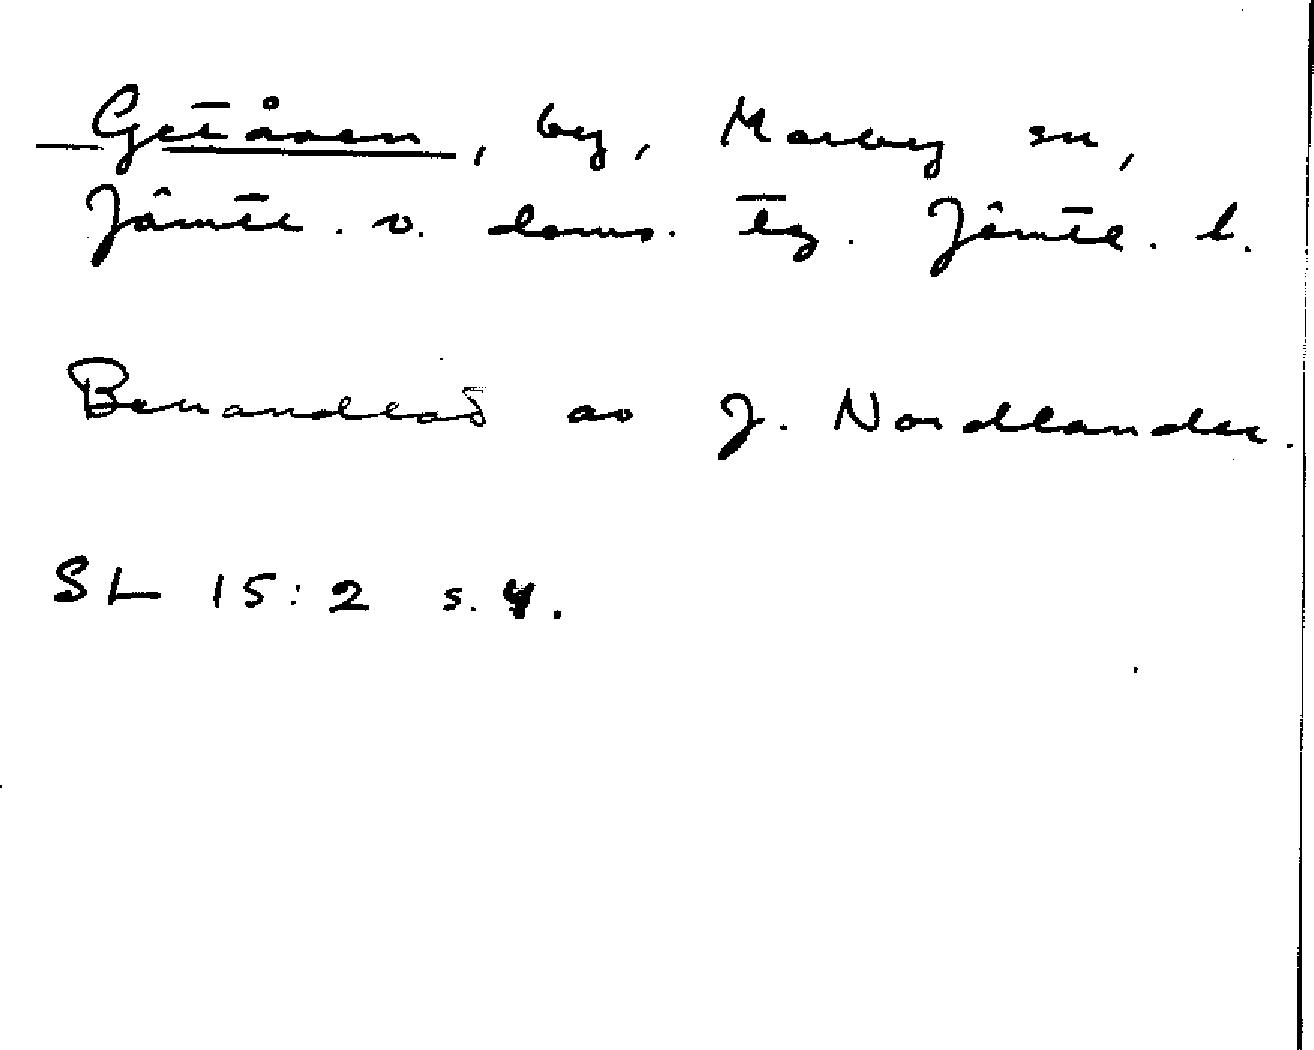 Getåsen, by, Marby sn,
Jämtl. v. doms. tg. Jämtl. l.
Behandlad av J. Nordlander.
SL 15:2 s. 4.